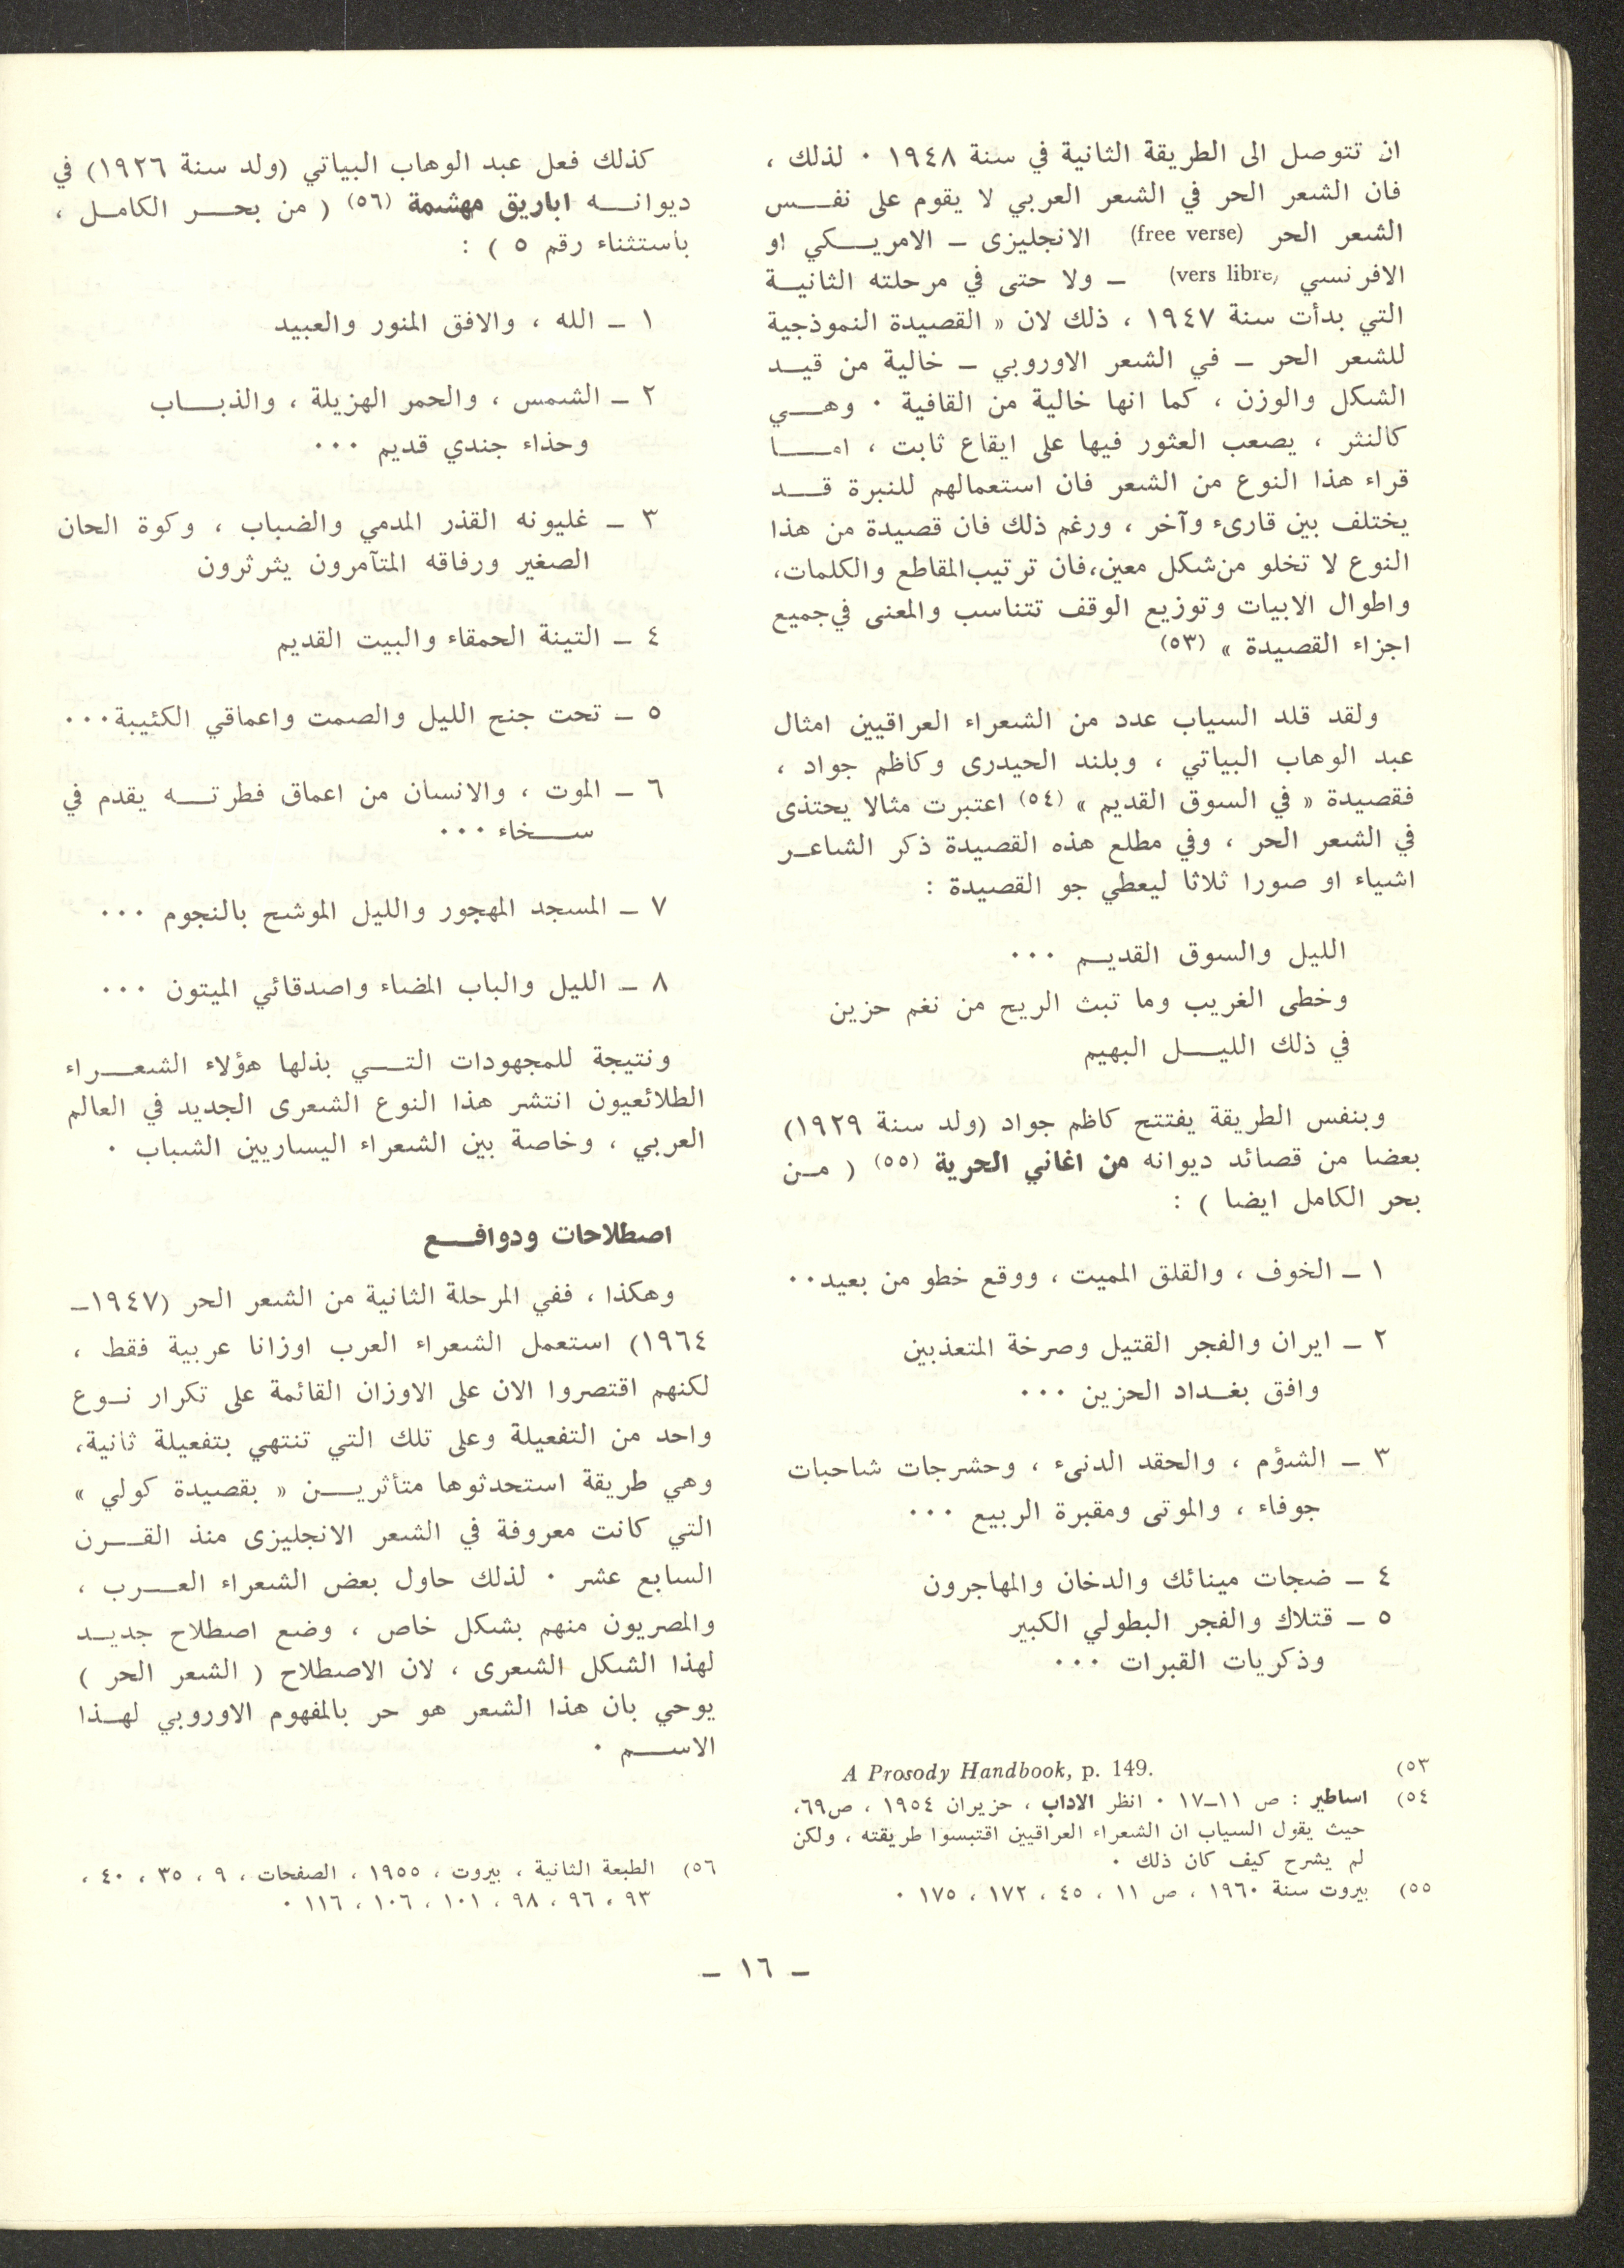 ان تتوصل الى الطريقة الثانية في سنة ١٩٤٨ ٠ لذلك ،
فان الشعر الحر في الشعر العربي لا يقوم على نفــس
الشعر الحر (free verse) الانجليزى ــ الامريــكي او
الافرنسي (vers libre) ــ ولا حتى في مرحلته الثانيــة
التي بدأت سنة ١٩٤٧ ، ذلك لان « القصيدة النموذجية
للشعر الحر ــ في الشعر الاوروبي ــ خالية من قيــد
الشكل والوزن ، كما انها خالية من القافية ٠ وهــي
كالنثر ، يصعب العثور فيها على ايقاع ثابت ، امــا
قراء هذا النوع من الشعر فان استعمالهم للنبرة قــد
يختلف بين قارىء وآخر ، ورغم ذلك فان قصيدة من هذا
النوع لا تخلو من شكل معين، فان ترتيب المقاطع والكلمات،
واطوال الابيات وتوزيع الوقف تتناسب والمعنى في جميع
اجزاء القصيدة » (٥٣)
ولقد قلد السياب عدد من الشعراء العراقيين امثال
عبد الوهاب البياتي ، وبلند الحيدرى وكاظم جواد ،
فقصيدة « في السوق القديم » (٥٤) اعتبرت مثالا يحتذى
في الشعر الحر ، وفي مطلع هذه القصيدة ذكر الشاعــر
اشياء او صورا ثلاثا ليعطي جو القصيدة :
الليل والسوق القديــم ٠٠٠
وخطى الغريب وما تبث الريح من نغم حزين
في ذلك الليــل البهيم
وبنفس الطريقة يفتتح كاظم جواد (ولد سنة ١٩٢٩)
بعضا من قصائد ديوانه من اغاني الحرية (٥٥) ( مــن
بحر الكامل ايضا ) :
١ ــ الخوف ، والقلق المميت ، ووقع خطو من بعيد٠٠
٢ ــ ايران والفجر القتيل وصرخة المتعذبين
وافق بغــداد الحزين ٠٠٠
٣ ــ الشؤم ، والحقد الدنىء ، وحشرجات شاحبات
جوفاء ، والموتى ومقبرة الربيع ٠٠٠
٤ ــ ضجات مينائك والدخان والمهاجرون
٥ ــ قتلاك والفجر البطولي الكبير
وذكريات القبرات ٠٠٠
٥٣) A Prosody Handbook, p. 149.
٥٤) اساطير : ص ١١ــ١٧ ٠ انظر الاداب ، حزيران ١٩٥٤ ، ص٦٩،
حيث يقول السياب ان الشعراء العراقيين اقتبسوا طريقته ، ولكن
لم يشرح كيف كان ذلك ٠
٥٥) بيروت سنة ١٩٦٠ ، ص ١١ ، ٤٥ ، ١٧٢ ، ١٧٥ ٠
كذلك فعل عبد الوهاب البياتي (ولد سنة ١٩٢٦) في
ديوانــه اباريق مهشمة (٥٦) ( من بحــر الكامــل ،
باستثناء رقم ٥ ) :
١ ــ الله ، والافق المنور والعبيد
٢ ــ الشمس ، والحمر الهزيلة ، والذبــاب
وحذاء جندي قديم ٠٠٠
٣ ــ غليونه القذر المدمي والضباب ، وكوة الحان
الصغير ورفاقه المتآمرون يثرثرون
٤ ــ التينة الحمقاء والبيت القديم
٥ ــ تحت جنح الليل والصمت واعماقي الكئيبة٠٠٠
٦ ــ الموت ، والانسان من اعماق فطرتــه يقدم في
ســخاء ٠٠٠
٧ ــ المسجد المهجور والليل الموشح بالنجوم ٠٠٠
٨ ــ الليل والباب المضاء واصدقائي الميتون ٠٠٠
ونتيجة للمجهودات التــي بذلها هؤلاء الشعــراء
الطلائعيون انتشر هذا النوع الشعرى الجديد في العالم
العربي ، وخاصة بين الشعراء اليساريين الشباب ٠
اصطلاحات ودوافــع
وهكذا ، ففي المرحلة الثانية من الشعر الحر (١٩٤٧ــ
١٩٦٤) استعمل الشعراء العرب اوزانا عربية فقط ،
لكنهم اقتصروا الان على الاوزان القائمة على تكرار نــوع
واحد من التفعيلة وعلى تلك التي تنتهي بتفعيلة ثانية،
وهي طريقة استحدثوها متأثريــن « بقصيدة كولي »
التي كانت معروفة في الشعر الانجليزى منذ القــرن
السابع عشر ٠ لذلك حاول بعض الشعراء العــرب ،
والمصريون منهم بشكل خاص ، وضع اصطلاح جديــد
لهذا الشكل الشعرى ، لان الاصطلاح ( الشعر الحر )
يوحي بان هذا الشعر هو حر بالمفهوم الاوروبي لهــذا
الاســم ٠
٥٦) الطبعة الثانية ، بيروت ، ١٩٥٥ ، الصفحات ، ٩ ، ٣٥ ، ٤٠ ،
٩٣ ، ٩٦ ، ٩٨ ، ١٠١ ، ١٠٦ ، ١١٦ ٠
ــ ١٦ ــ